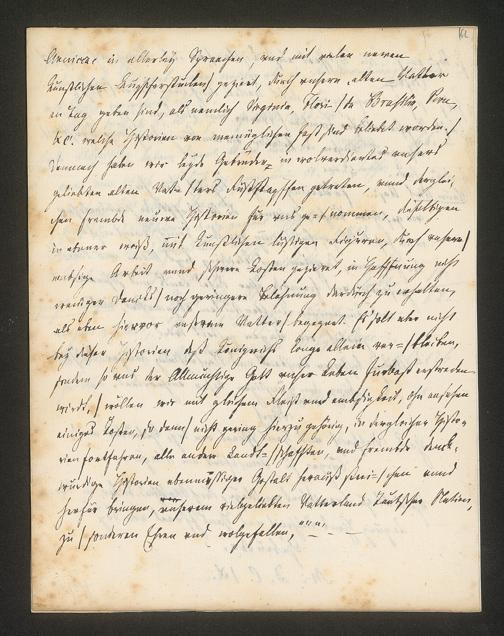 Americae in allerley Sprachen, und mit vielen newen
künstlichen Kupfferstücken/ gezieret, durch unsern alten Vatter
an Tag geben sind, als nemlich Virginia, Flori-/da Brasilia, Peru,
&c. welche Historien von menniglichen fast und beliebt worden./
Demnach haben wir beyde Gebrüder in unsers
geliebten alten Vatters Fußstapffen getretten, unnd derglei-
chen frembde neuere Historien für uns ge-/nommen, dieselbigen
in ebener weiß, mit künstlichen lustigen Figuren, durch unsere/
Arbeit unnd schwere Kosten gezieret, in Hoffnung nicht
weniger Dancks/ noch geringere Belohnung dardurch zu erhalten,
als eben hiervor unserem Vatter/ begegnet. Es solt aber nicht
bey dieser Historien deß Königreichs Congo allein ver-/bleiben,
sondern so uns der Allmächtige Gott unser Leben fristen
wirdt,/ wöllen wir mit gleichem Fleiß und, ohn ansehen
einiges Kosten, so dann/ nicht gering hierzu gehörig, in dergleichen Histo-
rien fortfahren, aller anderer Landt-/schafften, und frembde denck-
würdige Historien ebenmässiger Gestalt herauß/ unnd
herfür bringen, unserem vielgeliebten Vatterland Teutscher Nation,
zu/ sonderen Ehren und wolgefallen,